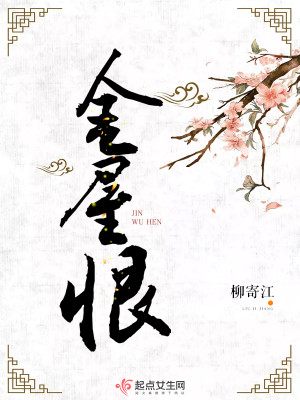 金屋恨
JIN
WU HEN
柳寄江
LIU JI JIANG
起点女生网